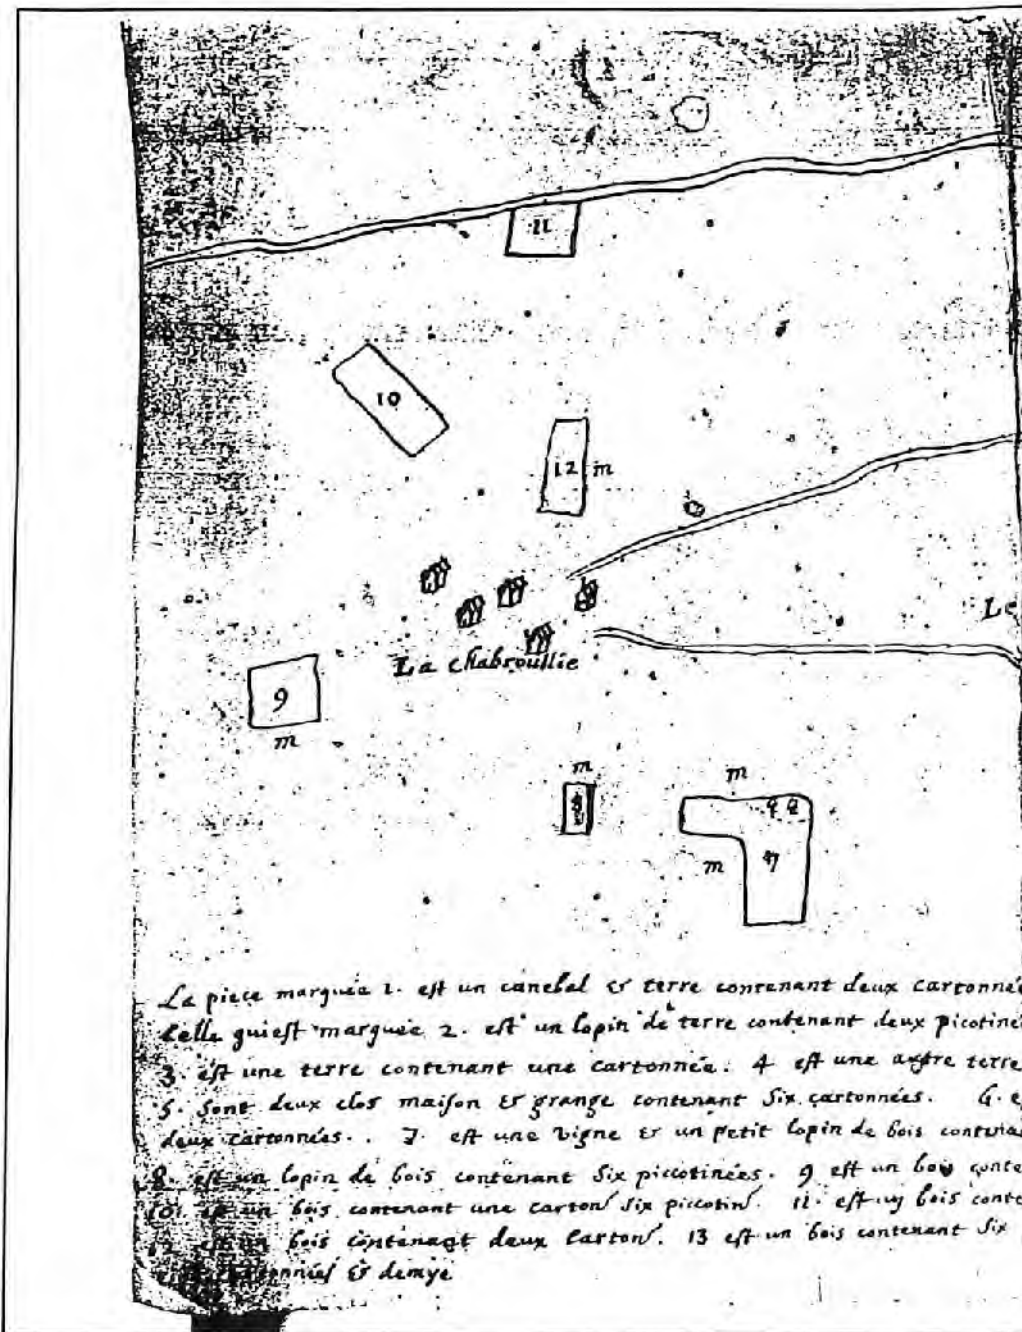 11
10
12 m
Le
La chabroullie
9
m
m
8
m
m
La piece marquée 1. est un canebal & terre contenant deux cartonné
Celle qui est marquée 2. est un lopin de terre contenant deux picotiné
3. est une terre contenant une cartonnée. 4 est une autre terre
5. Sont deux clos maison & grange contenant Six cartonnées. 6. e
deux cartonnées. . 7. est une vigne & un petit lopin de bois contena
8. est un lopin de bois contenant Six piccotinées. 9 est un bois conte
10. est un bois contenant une carton Six piccotin. 11. est un bois conte
12 est un bois contenant deux Carton. 13 est un bois contenant Six
& demye